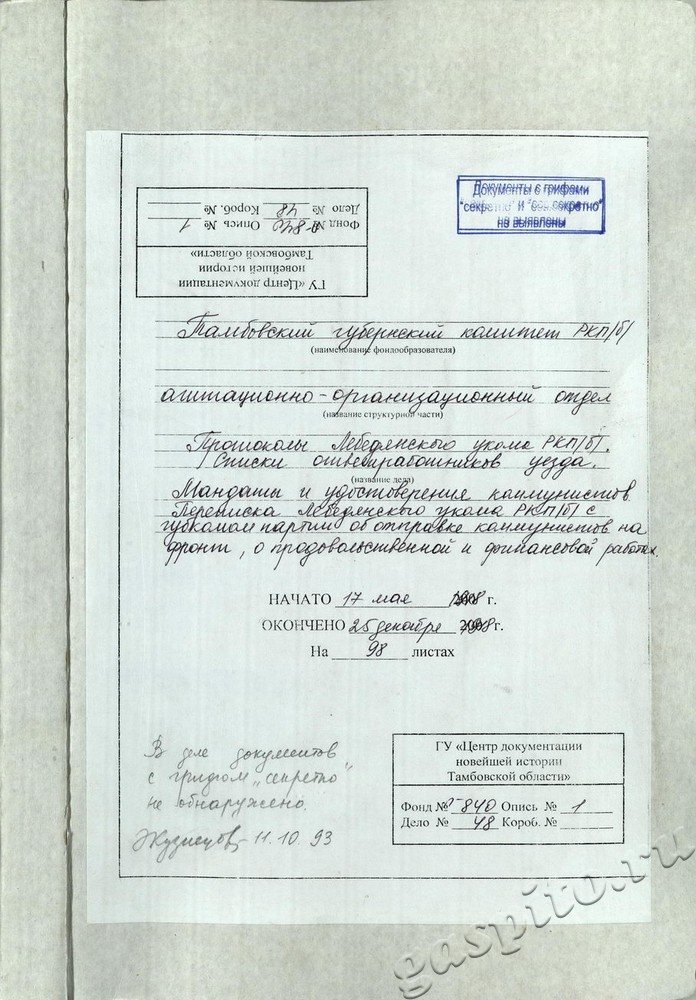 Документы с грифами
"секретно" и "сов. секретно"
не выявлены
ГУ «Центр документации
новейшей истории
Тамбовской области»
Фонд № Р-840 Опись № 1
Дело № 48 Короб. №
Тамбовский губернский комитет РКП/б/
(наименование фондообразователя)
агитационно-организационный отдел
(название структурной части)
Протоколы Лебедянского укома РКП/б/.
Списки ответработников уезда.
(название дела)
Мандаты и удостоверения коммунистов
Переписка Лебедянского укома РКП/б/ с
губкомом партии об отправке коммунистов на
фронт, о продовольственной и финансовой работах.
НАЧАТО 17 мая 1918 г.
ОКОНЧЕНО 25 декабря 1918 г.
На 98 листах
В деле документов
с грифом „секретно"
не обнаружено.
11.10.93
ГУ «Центр документации
новейшей истории
Тамбовской области»
Фонд № Р-840 Опись № 1
Дело № 48 Короб. №
gaspito.ru